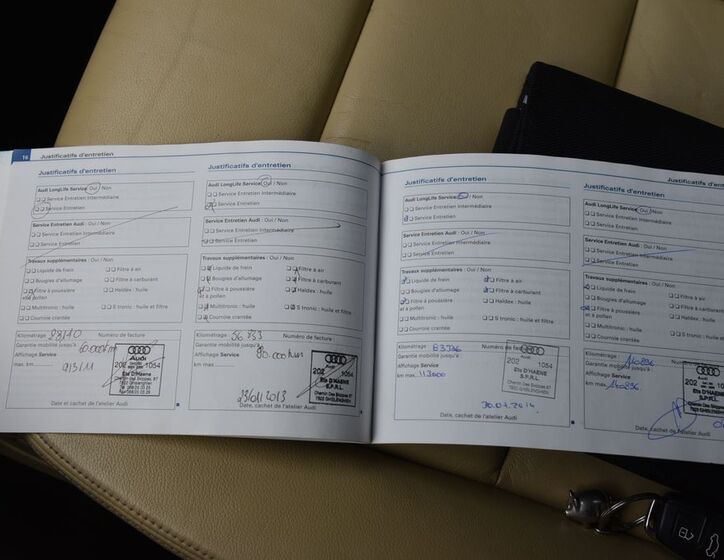 16 Justificatifs d'entretien
Justificatifs d'entretien
Audi LongLife Service: Oui / Non
Service Entretien Intermédiaire
Service Entretien
Service Entretien Audi : Oui / Non
Service Entretien Intermédiaire
Service Entretien
Travaux supplémentaires : Oui / Non
Liquide de frein Filtre à air
Bougies d'allumage Filtre à carburant
Filtre à poussière et à pollen Haldex : huile
Multitronic : huile S tronic : huile et filtre
Courroie crantée
Kilométrage Numéro de facture
Garantie mobilité jusqu'à :
Affichage Service
km max
9/5/11
Audi
202 1054
Ets D'Haene
Date et cachet de l'atelier Audi
Justificatifs d'entretien
Audi LongLife Service: Oui / Non
Service Entretien Intermédiaire
Service Entretien
Service Entretien Audi : Oui / Non
Service Entretien Intermédiaire
Service Entretien
Travaux supplémentaires : Oui / Non
Liquide de frein Filtre à air
Bougies d'allumage Filtre à carburant
Filtre à poussière et à pollen Haldex : huile
Multitronic : huile S tronic : huile et filtre
Courroie crantée
Kilométrage Numéro de facture
Garantie mobilité jusqu'à :
Affichage Service 80.000 km
km max
202 1054
Ets D'HAENE
S.P.R.L.
Date, cachet de l'atelier Audi
Justificatifs d'entretien
Audi LongLife Service / Non
Service Entretien Intermédiaire
Service Entretien
Service Entretien Audi : Oui / Non
Service Entretien Intermédiaire
Service Entretien
Travaux supplémentaires : Oui / Non
Liquide de frein Filtre à air
Bougies d'allumage Filtre à carburant
Filtre à poussière et à pollen Haldex : huile
Multitronic : huile S tronic : huile et filtre
Courroie crantée
Kilométrage Numéro de
Garantie mobilité jusqu'à :
Affichage Service
km max. 113000
202 1054
Ets D'HAENE
S.P.R.L.
Date, cachet de l'atelier Audi
Justificatifs d'en
Justificatifs d'entretien
Audi LongLife Service : Oui / Non
Service Entretien Intermédiaire
Service Entretien
Service Entretien Audi : Oui / Non
Service Entretien Intermédiaire
Service Entretien
Travaux supplémentaires : Oui / Non
Liquide de frein Filtre à air
Bougies d'allumage Filtre à carburant
Filtre à poussière et à pollen Haldex : huile
Multitronic : huile S tronic : huile
Courroie crantée
Kilométrage Numéro de facture
Garantie mobilité jusqu'à :
Affichage Service
km max.
202 105
Ets D'HAENE
S.P.R.L.
Date, cachet de l'atelier Audi